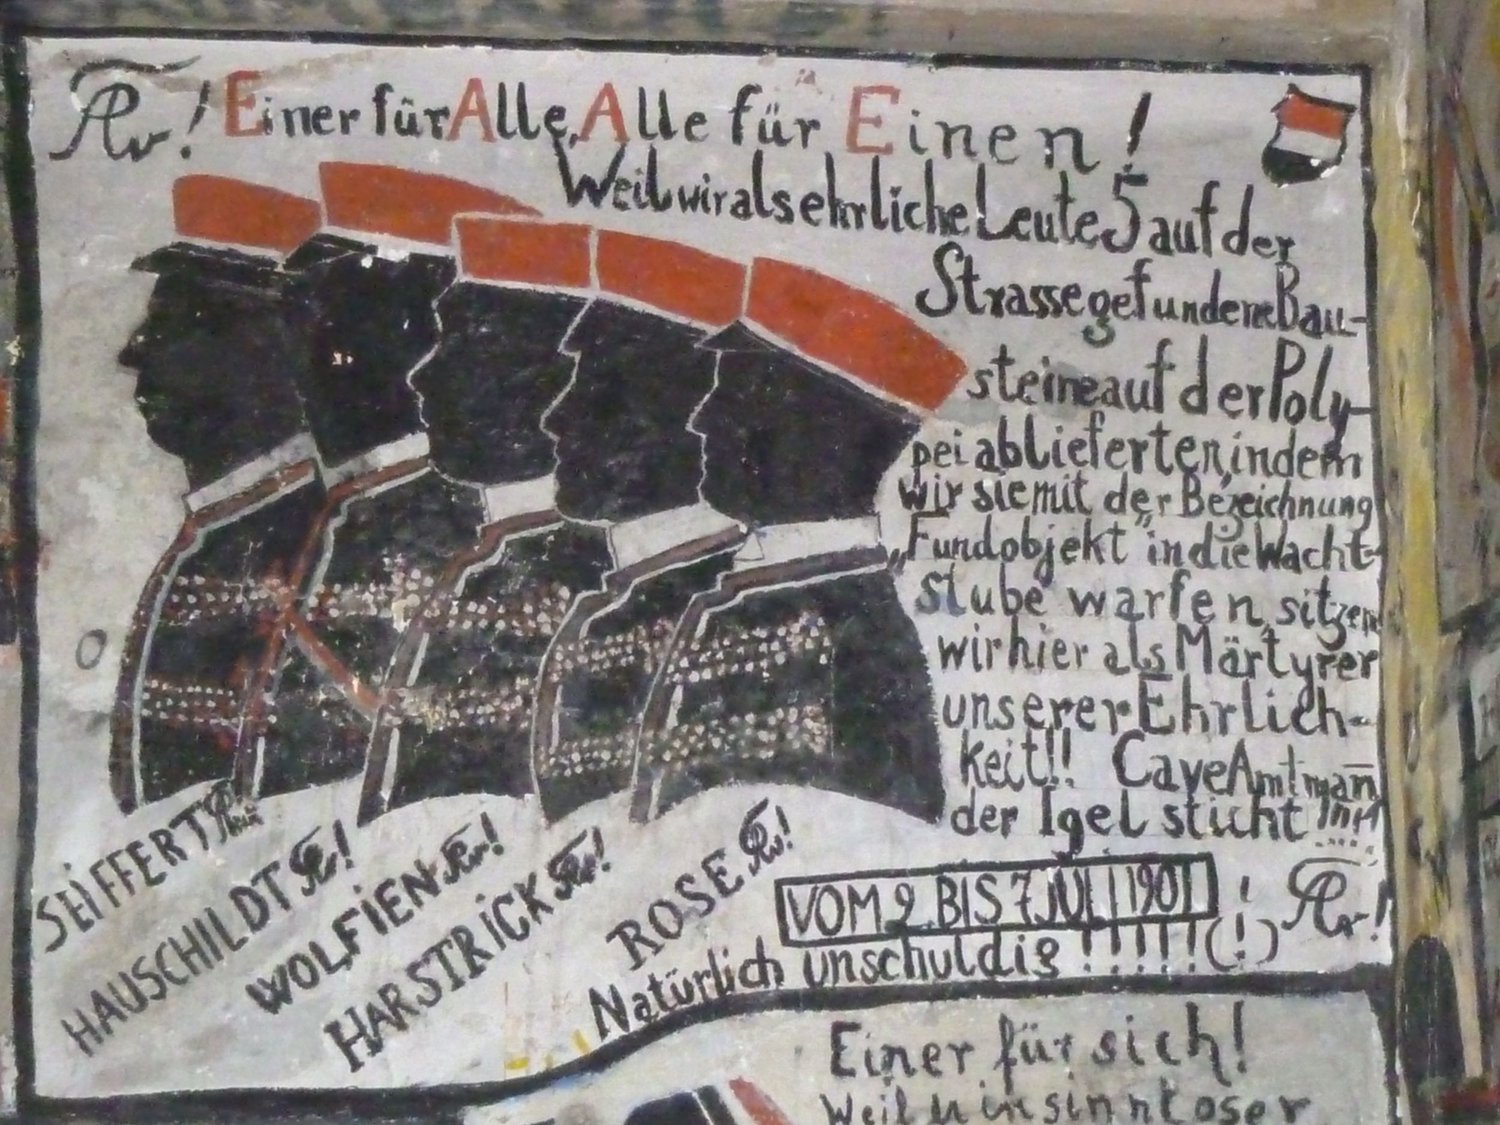 ! Einer für Alle, Alle für Einen!
Weil wir als ehrliche Leute 5 auf der
Strasse gefundene Bau-
steine auf der Poly-
pei ablieferten, indem
wir sie mit der Bezeichnung
„Fundobjekt" in die Wacht-
Stube warfen, sitzen
wir hier als Märtyrer
unserer Ehrlich-
keit!! Cave Amtmañ
der Igel sticht
SEIFFERT
HAUSCHILDT !
WOLFIEN !
HARSTRICK !
ROSE !
VOM 2. BIS 7 JULI 1901 !
Natürlich unschuldig !!!!!(!)
Einer für sich!
Weil in sinnloser